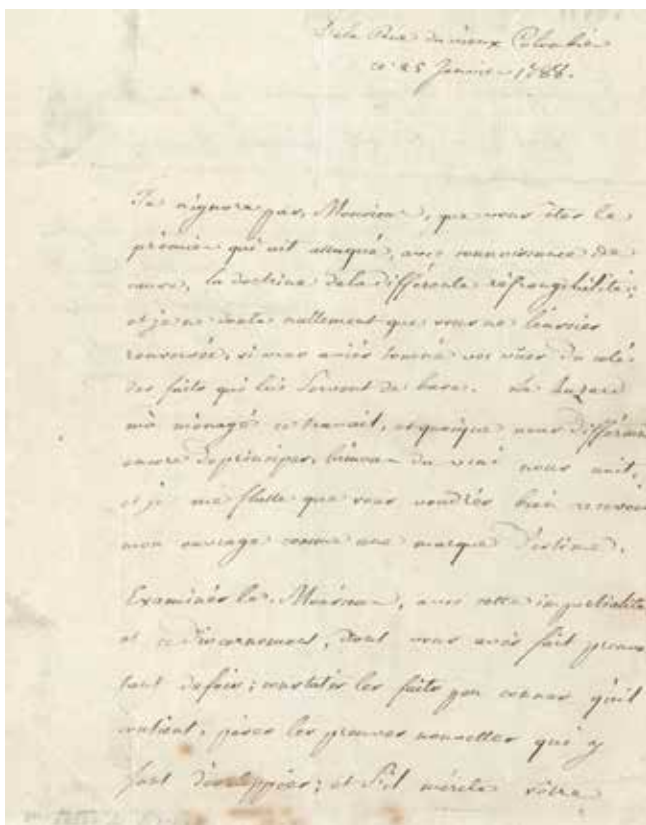 De la Rue du vieux Colombier
ce 25 Janvier 1788.
Je n'ignore pas, Monsieur, que vous êtes le
prémier qui ait attaqué, avec connoissance de
cause, la doctrine de la différente réfrangibilité;
et je ne doute nullement que vous ne l'eussiés
renversée, si vous aviés tourné vos vües du coté
des faits qui lui servent de base. Le hazard
m'a ménagé ce travail, et quoique nous différions
encore de principes, l'amour du vrai nous unit,
et je me flatte que vous voudrés bien recevoir
mon ouvrage comme une marque d'estime.
Examinés le, Monsieur, avec cette impartialité
et ce discernement, dont vous avés fait preuve
tant de fois; constatés les faits peu connus qu'il
contient, pesés les preuves nouvelles qui y
sont développées; et s'il mérite vôtre